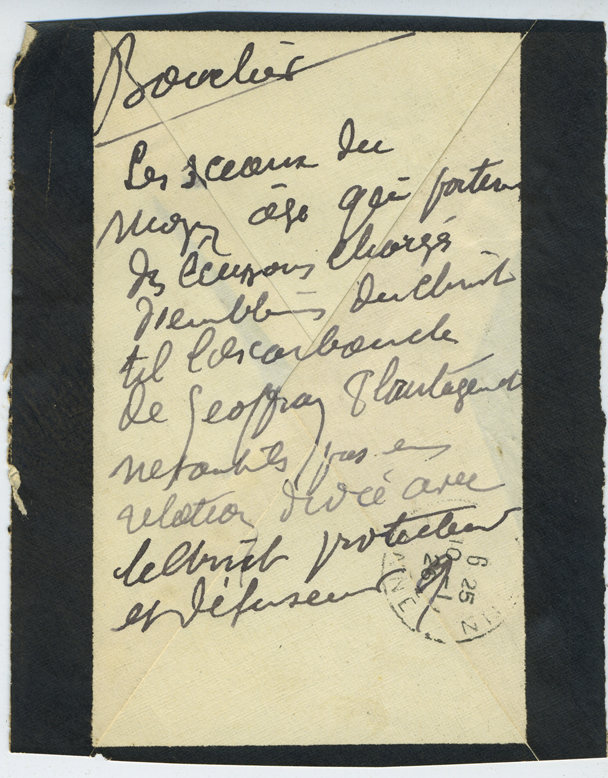 Bouclier
Les sceaux du
moyen âge qui portent
des écussons chargés
d'emblèmes du Christ
tel l'escarboucle
de Geoffroy Plantagenet
ne sont-ils pas en
relation avec
le Christ protecteur
et défenseur ?
6 25